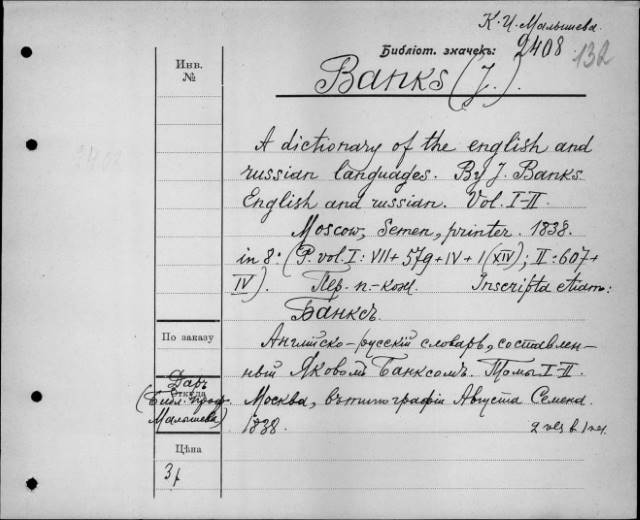 К. И. Малышева.
Библіот. значекъ: 2408 132
Banks (J.).
Инв.
№
A dictionary of the english and
russian languages. By J. Banks.
English and russian. Vol. I-II.
Moscow, Semen, printer. 1838.
in 8: (P. vol. I: VII + 579 + IV + 1 (XIV); II: 607 +
IV). Пер. п.-кож. Inscripta etiam:
Банксъ.
По заказу
Англійско-русскій словарь, составлен-
ный Яковомъ Банксомъ. Томы I-II.
Даръ
Откуда
(Библ. проф.
Малышева)
Москва, въ типографіи Августа Семена.
1838.
2 vol. в 1 vol.
Цѣна
3 р